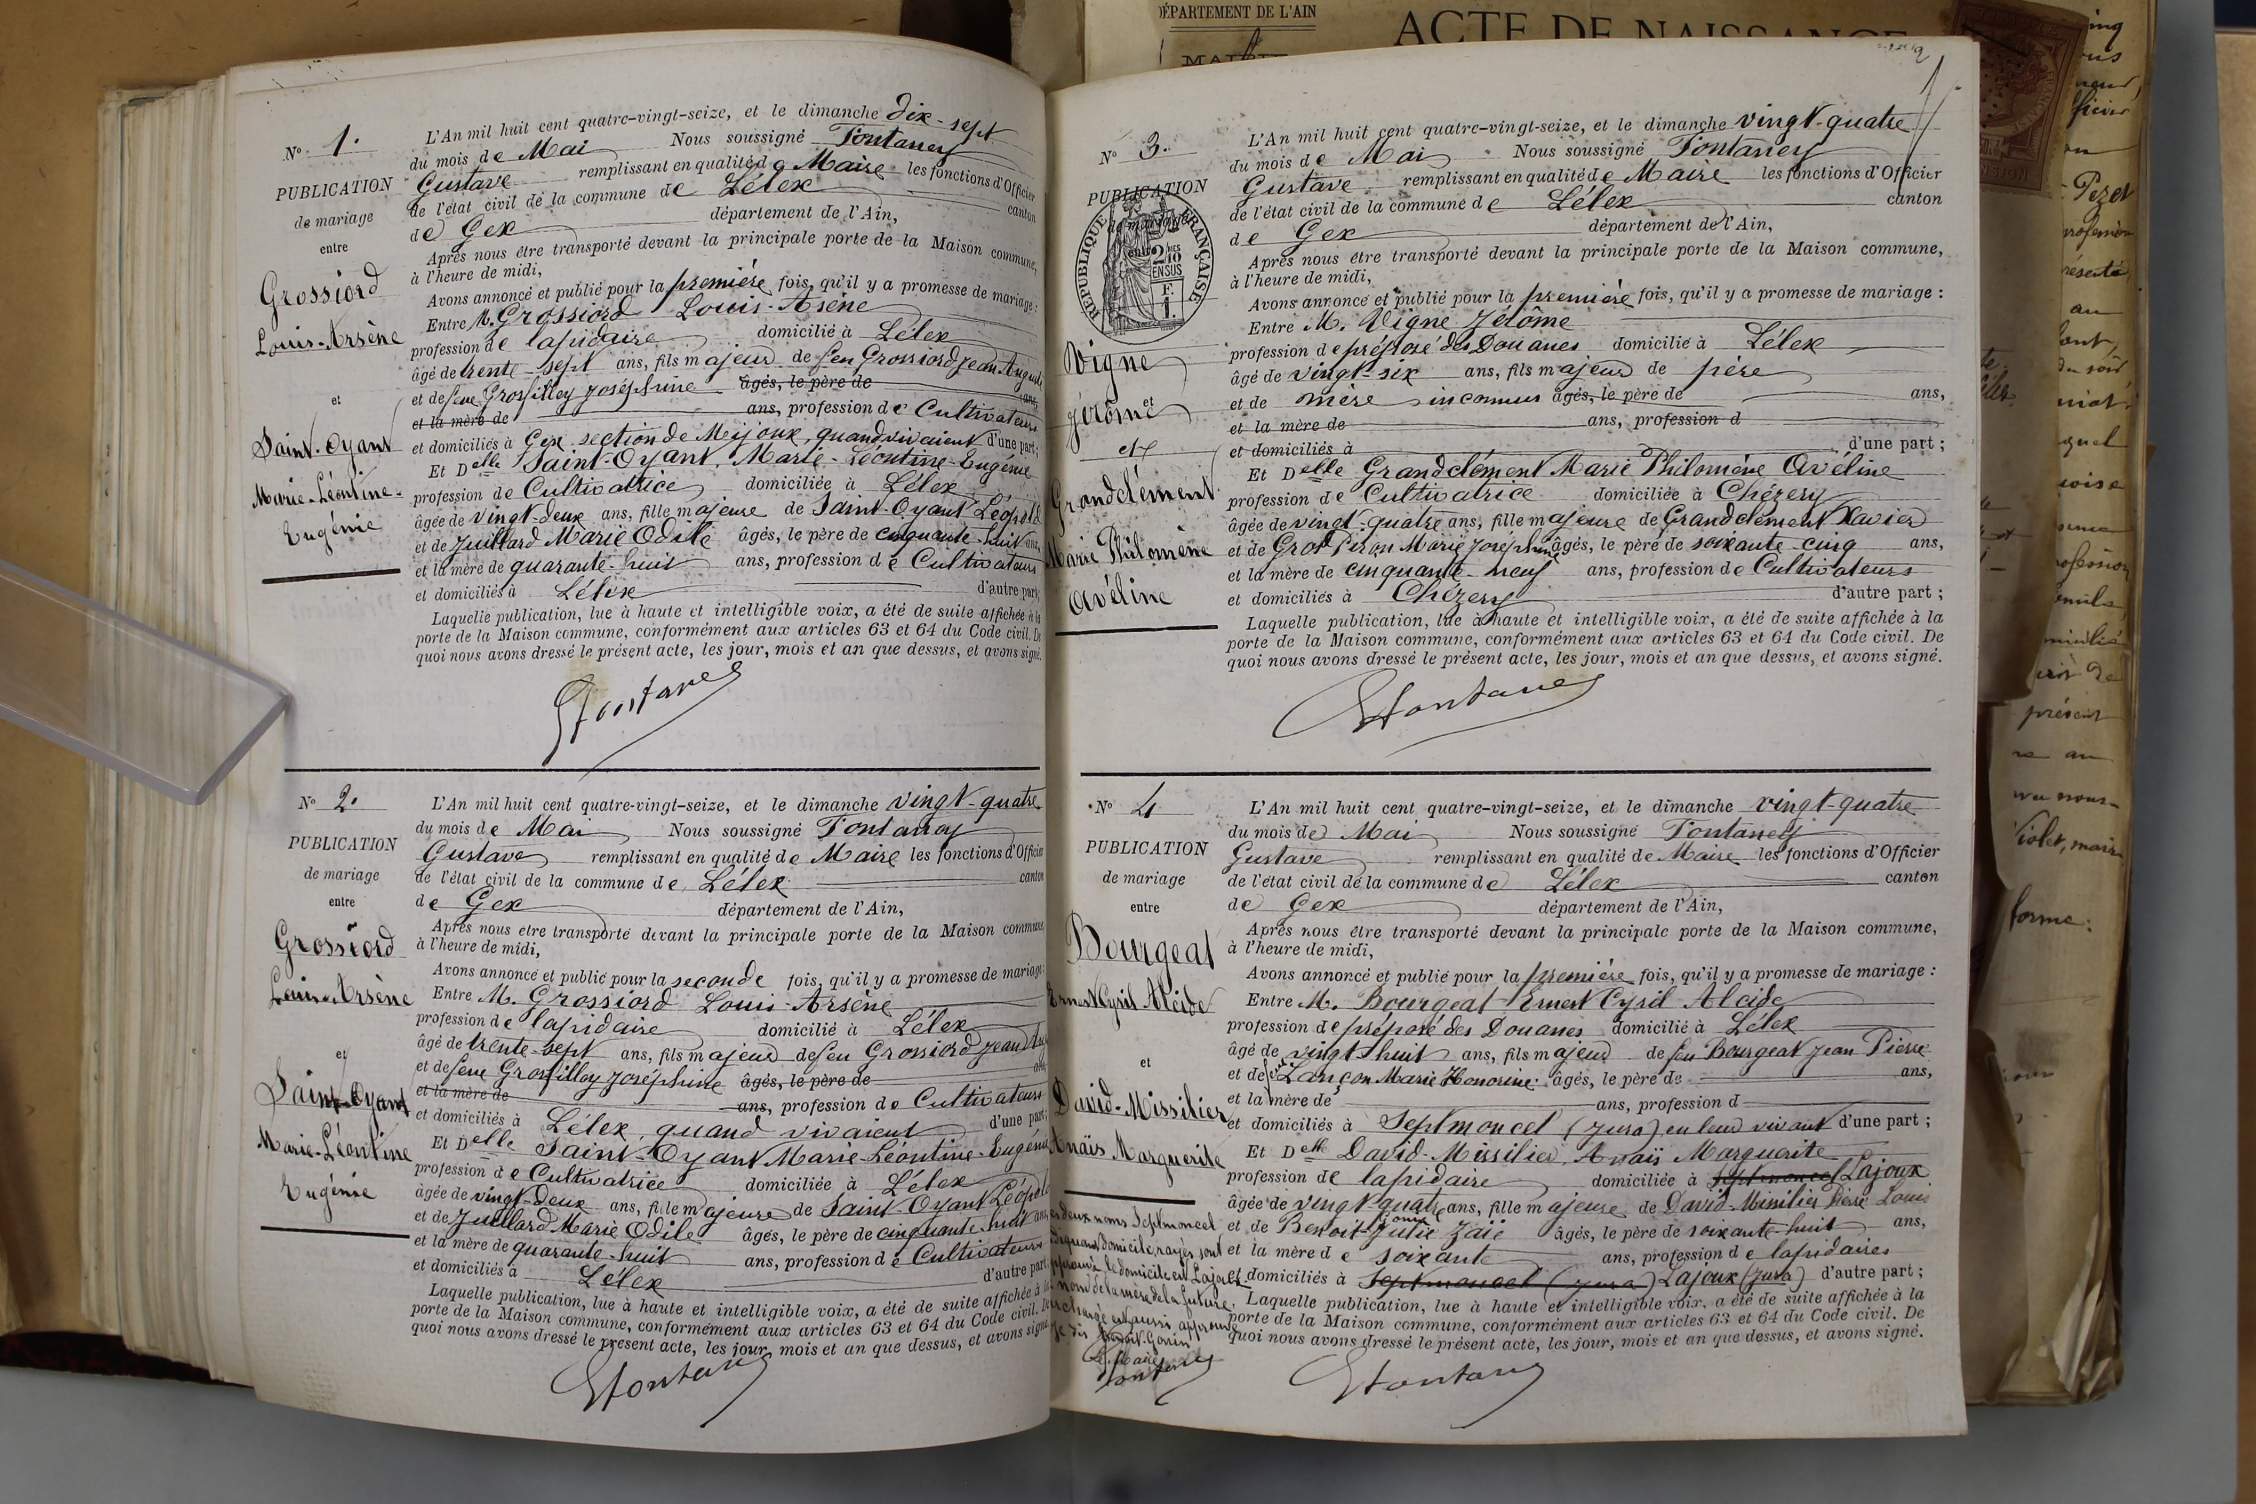 N° 1.
PUBLICATION
de mariage
entre
Grossiord
Louis-Arsène
et
Saint-Oyant
Marie-Léontine-
Eugénie
L'An mil huit cent quatre-vingt-seize, et le dimanche dix-sept
du mois de Mai Nous soussigné Fontaney
Gustave remplissant en qualité de Maire les fonctions d'Officier
de l'état civil de la commune de Lélex canton
de Gex département de l'Ain,
Après nous être transporté devant la principale porte de la Maison commune,
à l'heure de midi,
Avons annoncé et publié pour la première fois, qu'il y a promesse de mariage :
Entre M. Grossiord Louis-Asène
profession de lapidaire domicilié à Lélex
âgé de trente-sept ans, fils majeur de feu Grossiord Jean Auguste
et de feue Grosfilley Joséphine âgés, le père de ans,
et la mère de ans, profession de Cultivateurs
et domiciliés à Gex section de Mijoux, quand vivaient d'une part ;
Et Delle Saint-Oyant, Marie-Léontine-Eugénie
profession de Cultivatrice domiciliée à Lélex
âgée de vingt-deux ans, fille majeure de Saint-Oyant Léopold
et de Juillard Marie Odile âgés, le père de cinquante-huit ans,
et la mère de quarante-huit ans, profession de Cultivateurs
et domiciliés à Lélex d'autre part ;
Laquelle publication, lue à haute et intelligible voix, a été de suite affichée à la
porte de la Maison commune, conformément aux articles 63 et 64 du Code civil. De
quoi nous avons dressé le présent acte, les jour, mois et an que dessus, et avons signé.
GFontaney
N° 2.
PUBLICATION
de mariage
entre
Grossiord
Louis-Arsène
et
Saint-Oyant
Marie-Léontine
Eugénie
L'An mil huit cent quatre-vingt-seize, et le dimanche vingt-quatre
du mois de Mai Nous soussigné Fontaney
Gustave remplissant en qualité de Maire les fonctions d'Officier
de l'état civil de la commune de Lélex canton
de Gex département de l'Ain,
Après nous être transporté devant la principale porte de la Maison commune,
à l'heure de midi,
Avons annoncé et publié pour la seconde fois, qu'il y a promesse de mariage :
Entre M. Grossiord Louis-Arsène
profession de lapidaire domicilié à Lélex
âgé de trente-sept ans, fils majeur de feu Grossiord Jean
et de feue Grosfilley Joséphine âgés, le père de ans,
et la mère de ans, profession de Cultivateurs
et domiciliés à Lélex, quand vivaient d'une part ;
Et Delle Saint-Oyant Marie-Léontine-Eugénie
profession de Cultivatrice domiciliée à Lélex
âgée de vingt-deux ans, fille majeure de Saint-Oyant Léopold
et de Juillard Marie Odile âgés, le père de cinquante-huit ans,
et la mère de quarante-huit ans, profession de Cultivateurs
et domiciliés à Lélex d'autre part
Laquelle publication, lue à haute et intelligible voix, a été de suite affichée à la
porte de la Maison commune, conformément aux articles 63 et 64 du Code civil. De
quoi nous avons dressé le présent acte, les jour, mois et an que dessus, et avons signé
GFontaney
DÉPARTEMENT DE L'AIN
ACTE DE NAISSANCE
2
N° 3.
PUBLICATION
de mariage
entre
RÉPUBLIQUE FRANÇAISE
2/10 EN SUS
F. 1.
Vigne
et
Jérôme
et
Grandclément
Marie Philomène
Avéline
L'An mil huit cent quatre-vingt-seize, et le dimanche vingt-quatre
du mois de Mai Nous soussigné Fontaney
Gustave remplissant en qualité de Maire les fonctions d'Officier
de l'état civil de la commune de Lélex canton
de Gex département de l'Ain,
Après nous être transporté devant la principale porte de la Maison commune,
à l'heure de midi,
Avons annoncé et publié pour la première fois, qu'il y a promesse de mariage :
Entre M. Vigne Jérôme
profession de préposé des Douanes domicilié à Lélex
âgé de vingt-six ans, fils majeur de père
et de mère inconnus âgés, le père de ans,
et la mère de ans, profession d
et domiciliés à d'une part ;
Et Delle Grandclément Marie Philomène Avéline
profession de Cultivatrice domiciliée à Chézery
âgée de vingt-quatre ans, fille majeure de Grandclément Xavier
et de Gros Piron Marie Joséphine âgés, le père de soixante-cinq ans,
et la mère de cinquante-neuf ans, profession de Cultivateurs
et domiciliés à Chézery d'autre part ;
Laquelle publication, lue à haute et intelligible voix, a été de suite affichée à la
porte de la Maison commune, conformément aux articles 63 et 64 du Code civil. De
quoi nous avons dressé le présent acte, les jour, mois et an que dessus, et avons signé.
GFontaney
N° 4
PUBLICATION
de mariage
entre
Bourgeat
Ernest Cyril Alcide
et
David-Missilier
Anaïs Marguerite
L'An mil huit cent quatre-vingt-seize, et le dimanche vingt-quatre
du mois de Mai Nous soussigné Fontaney
Gustave remplissant en qualité de Maire les fonctions d'Officier
de l'état civil de la commune de Lélex canton
de Gex département de l'Ain,
Après nous être transporté devant la principale porte de la Maison commune,
à l'heure de midi,
Avons annoncé et publié pour la première fois, qu'il y a promesse de mariage :
Entre M. Bourgeat Ernest Cyril Alcide
profession de préposé des Douanes domicilié à Lélex
âgé de vingt-huit ans, fils majeur de feu Bourgeat Jean Pierre
et de feue Lançon Marie Honorine âgés, le père de ans,
et la mère de ans, profession d
et domiciliés à Septmoncel (Jura) en leur vivant d'une part ;
Et Delle David-Missilier Anaïs Marguerite
profession de lapidaire domiciliée à Septmoncel Lajoux
âgée de vingt-quatre ans, fille majeure de David-Missilier Désiré Louis
et de Benoit-Gonin Julie Zaïe âgés, le père de soixante-huit ans,
et la mère de soixante ans, profession de lapidaires
et domiciliés à Septmoncel (Jura) Lajoux (Jura) d'autre part ;
Laquelle publication, lue à haute et intelligible voix, a été de suite affichée à la
porte de la Maison commune, conformément aux articles 63 et 64 du Code civil. De
quoi nous avons dressé le présent acte, les jour, mois et an que dessus, et avons signé.
GFontaney
deux noms Septmoncel
domicile rayés sont
le domicile est Lajoux
nom de la mère de la future
Gonin
Le Maire
Fontaney
Pezet
profession
au
quel
Violet, maire
forme.